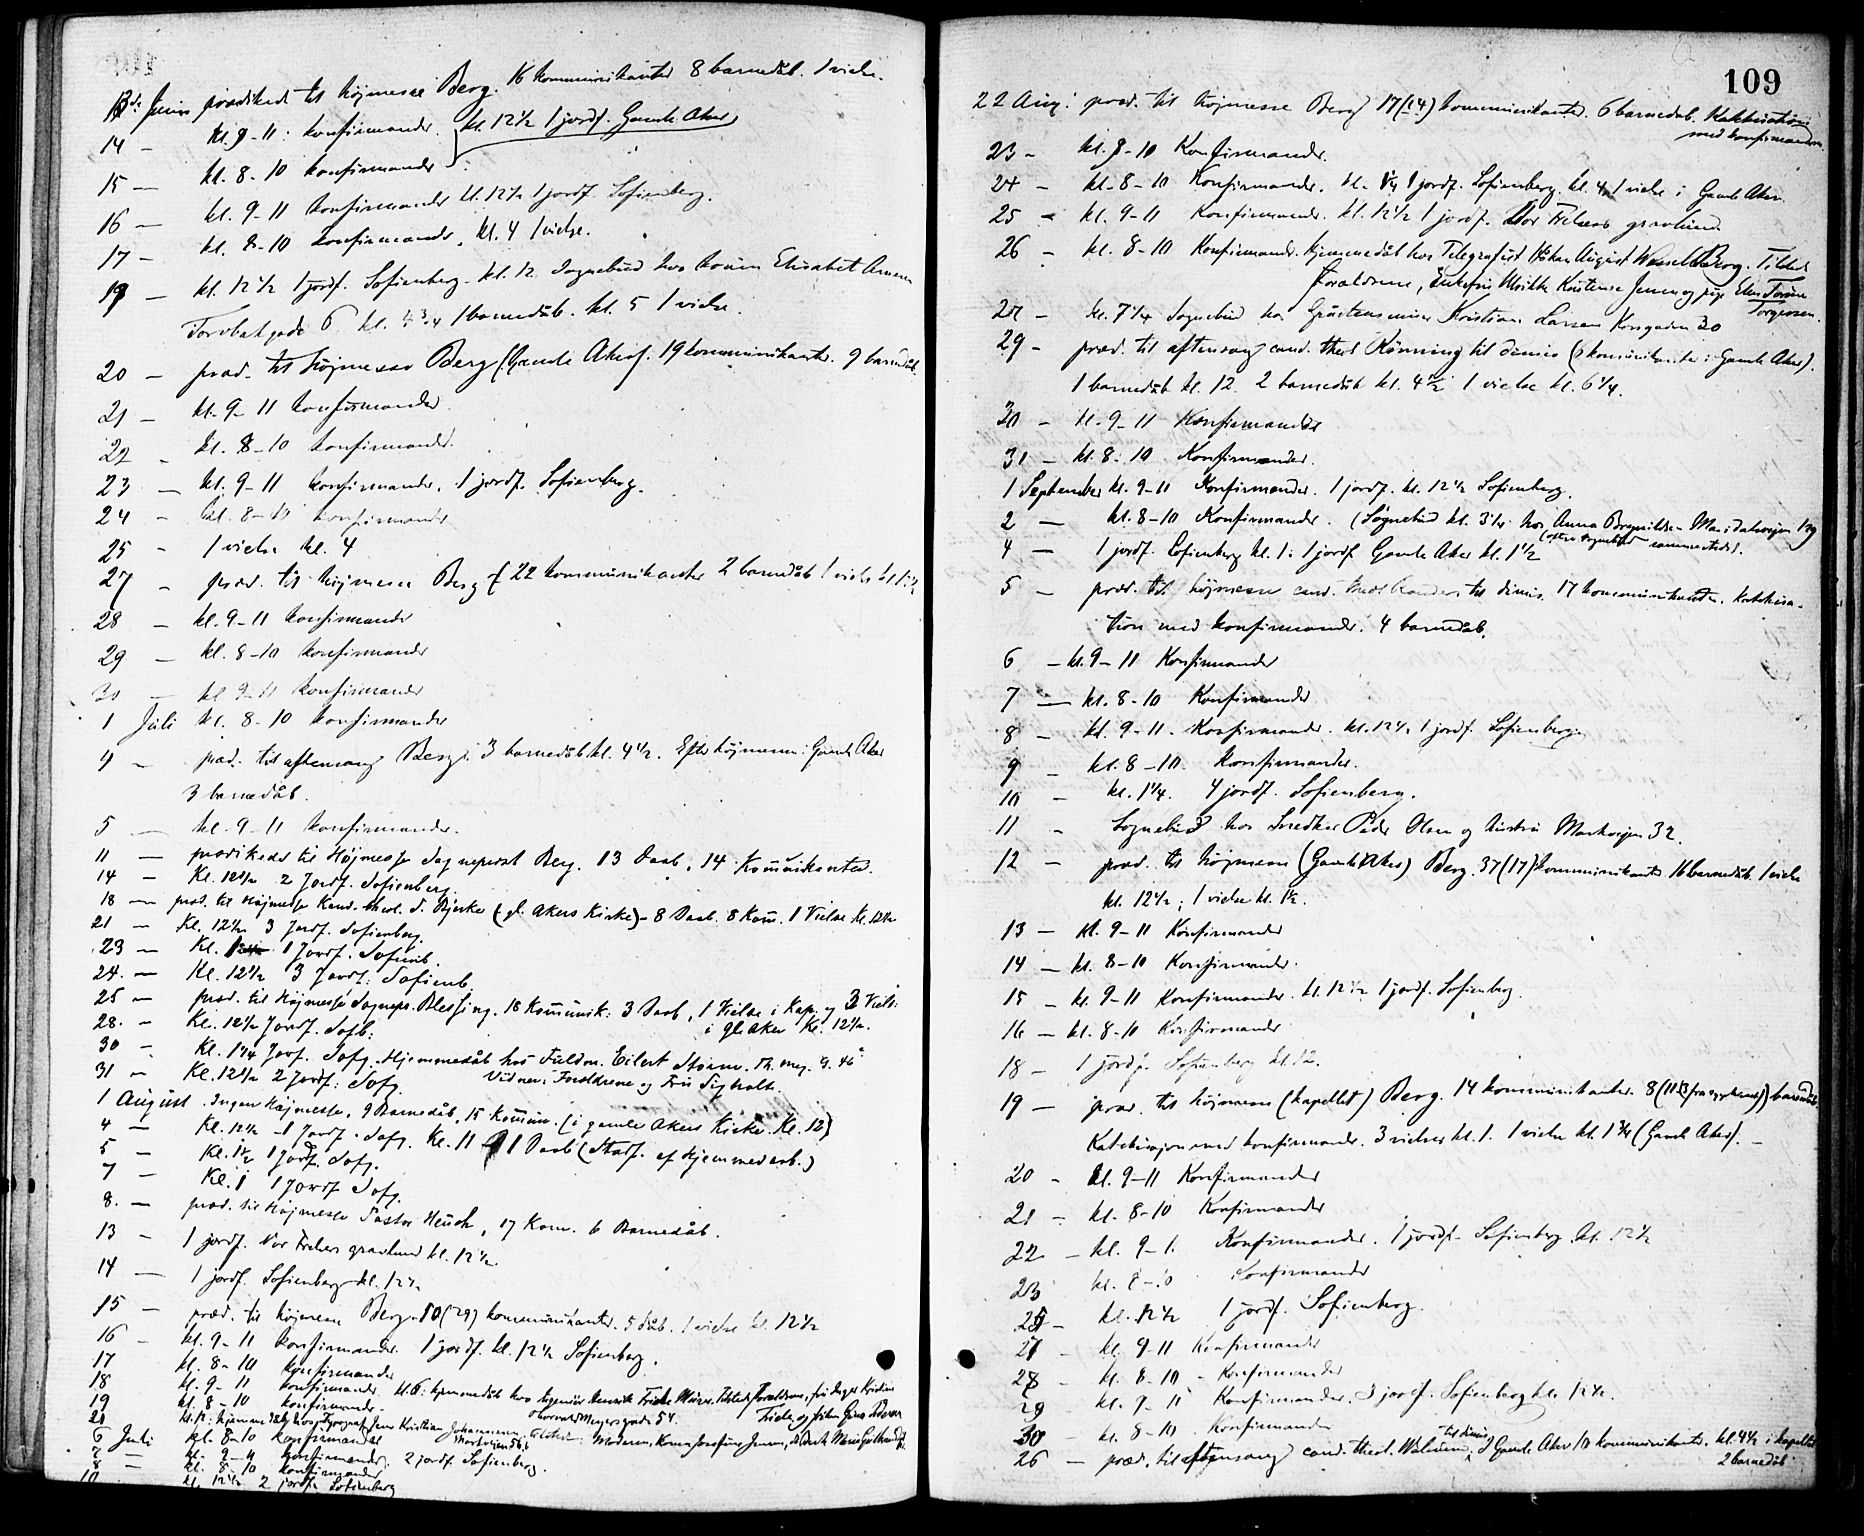 13de Juni prædiket til højmesse Berg. 16 kommunikanter 8 barnedåb. 1 vielse.
14 — kl. 9-11: konfirmander. kl. 12½ 1 jordf. Gamle Aker
15 — kl. 8-10 konfirmander
16 — kl. 9-11 konfirmander kl. 12½ 1 jordf. Sofienberg.
17 — kl. 8-10 konfirmander, kl. 4 1 vielse.
19 — kl. 12½ 1 jordf. Sofienberg. kl. 12 Sognebud hos konen Elisabet
Torvbakgade 6. 1 barnedåb. kl. 5 1 vielse.
20 — præd. til højmesse Berg (Gamle Aker). 19 kommunikanter. 9 barnedåb.
21 — kl. 9-11 konfirmander.
22 — kl. 8-10 konfirmander.
23 — kl. 9-11 konfirmander, 1 jordf. Sofienberg.
24 — kl. 8-10 konfirmander
25 — 1 vielse kl. 4
27 — præd. til højmesse Berg 22 kommunikanter 2 barnedåb 1 vielse
28 — kl. 9-11 konfirmander
29 — kl. 8-10 konfirmander
30 — kl 9-11 konfirmander
1 Juli kl. 8-10 konfirmander
4 — præd. til aftensang Berg. 3 barnedåb kl. 4½. Efter højmessen i Gamle Aker
3 barnedåb.
5 — kl. 9-11 konfirmander.
11 — prædikedes til Højmesse Sogneprest Berg. 13 Daab, 14 Kommunikanter.
14 — Kl. 12½ 2 Jordf. Sofienberg.
18 — præd. til Højmesse Kand. theol. S. Bjerke (gl. Akers Kirke) - 8 Daab. 8 Kom. 1 Vielse Kl. 12½
21 — Kl. 12½ 3 Jordf. Sofienberg.
23 — Kl. 1 Jordf. Sofienb.
24. — Kl. 12½ 3 Jordf. Sofienb.
25 — præd. til Højmesse Sognepr. Blessing. 18 Kommunik: 3 Daab, 1 Vielse i Kap. og 3 Viels:
i gl Aker Kl. 12½.
28. — Kl. 12½ Jordf. Sofb:
30 — Kl. 1¼ Jorf. Sofg. Hjemmedåb hos Fuldm. Eilert Storm. Th. mey. g. 46
Vidner: Forældrene og Fru
31 — Kl. 12½ 2 Jordf: Sofg.
1 August. Ingen Højmesse, 9 Barnedåb, 15 Kommun. (i gamle Akers Kirke. Kl. 12)
4 — Kl. 12½ 1 Jordf. Sofg. Kl. 11 1 Daab (Stadf. af Hjemmedaab.)
5 — Kl. 1½ 1 Jordf. Sofg.
7 — Kl. 1 1 Jordf Sofg.
8. — præd. til Højmesse Pastor Heuch, 17 Kom. 6 Barnedåb.
13 — 1 jordf. Vor Frelsers gravlund kl. 12½.
14 — 1 jordf. Sofienberg kl. 12½
15 — præd. til højmesse Berg. kommunikanter. 5 dåb. 1 vielse kl. 12½
16 — kl. 9-11 konfirmander. 1 jordf. kl. 12½ Sofienberg.
17 kl. 8-10 konfirmander
18 kl. 9-11 konfirmander. kl. 6: hjemmedåb hos
19 kl. 8-10 konfirmander. Thorvald Meyersgade 54.
6 Juli kl. 8-10 konfirmander
7 — kl. 9-11 konfirmander. 2 jordf Sofienberg.
8 — kl. 8-10 konfirmander
10 kl. 12½ 2 jordf. Sofienberg
109
22 Aug: præd. til højmesse Berg 17(14) kommunikanter. 6 barnedåb. Katekisation
med konfirmander.
23 — kl. 8-10 Konfirmander.
24 — kl. 8-10 Konfirmander. 1 jordf. Sofienberg. kl. 4 1 vielse i Gamle Aker.
25 — kl. 9-11 Konfirmander. kl. 12½ 1 jordf. Vor Frelsers gravlund
26 — kl. 8-10 Konfirmander. hjemmedåb hos Telegrafist Håkon August Wessel Berg. Tilsted
Forældrene, Enkefru Ulrikke Jensen og pige Torgersen.
kl. 7¼ Sognebud hos Kristian Larsen Korsgaden 30
29 — præd. til aftensang cand. theol. Rønning til dimis (kommunikanter i Gamle Aker).
1 barnedåb kl. 12. 2 barnedåb kl. 4½ 1 vielse kl. 6¼.
30 — kl. 9-11 Konfirmander
31 — kl. 8-10 Konfirmander.
1 September kl. 9-11 Konfirmander. 1 jordf. kl. 12½ Sofienberg.
2 — kl. 8-10 Konfirmander. (Sognebud kl. 3½ hos Anna Maridalsvejen
4 — 1 jordf. Sofienberg kl. 1. 1 jordf. Gamle Aker kl. 1½
5 — præd. til højmesse cand. theol. til dimis. 17 kommunikanter. Katekisa-
tion med konfirmander. 4 barnedåb.
6 — kl. 9-11 Konfirmander
7 — kl. 8-10 Konfirmander
8 — kl. 9-11. Konfirmander. kl. 12½ 1 jordf. Sofienberg.
9 — kl. 8-10. Konfirmander.
10 — kl. 1¼. 4 jordf. Sofienberg.
11 — Sognebud hos Snedker Peder Olsen og hustru Markvejen 32.
12 — præd. til højmesse (Gamle Aker) Berg. 37(17) kommunikanter 16 barnedåb 1 vielse
kl. 12½; 1 vielse kl. 1½.
13 — kl. 9-11 Konfirmander
14 — kl. 8-10 Konfirmander.
15 — kl. 9-11 Konfirmander. kl. 12½ 1 jordf. Sofienberg.
16 — kl. 8-10 Konfirmander
18 — 1 jordf. Sofienberg kl. 12.
19 — præd. til højmesse (kapellet) Berg. 14 kommunikanter. 8 barnedåb
Katekisasjon med konfirmander. 3 vielser kl. 1. 1 vielse kl. 1¾ (Gamle Aker). —
20 — kl. 9-11 Konfirmander
21 — kl. 8-10 Konfirmander
22 — kl. 9-1. Konfirmander. 1 jordf. Sofienberg kl. 12½
23 kl. 8-10 Konfirmander
25 — kl. 12½ 1 jordf. Sofienberg.
27 — kl. 9-11 Konfirmander
28 — kl. 8-10 - Konfirmander
29 — kl. 9-11 Konfirmander. 3 jordf. Sofienberg kl. 12½.
30 — kl. 8-10. Konfirmander
26 — præd. til aftensang cand. theol. til dimis, Gamle Aker 10 kommunikanter. kl. 4½ i kapellet
2 barnedåb